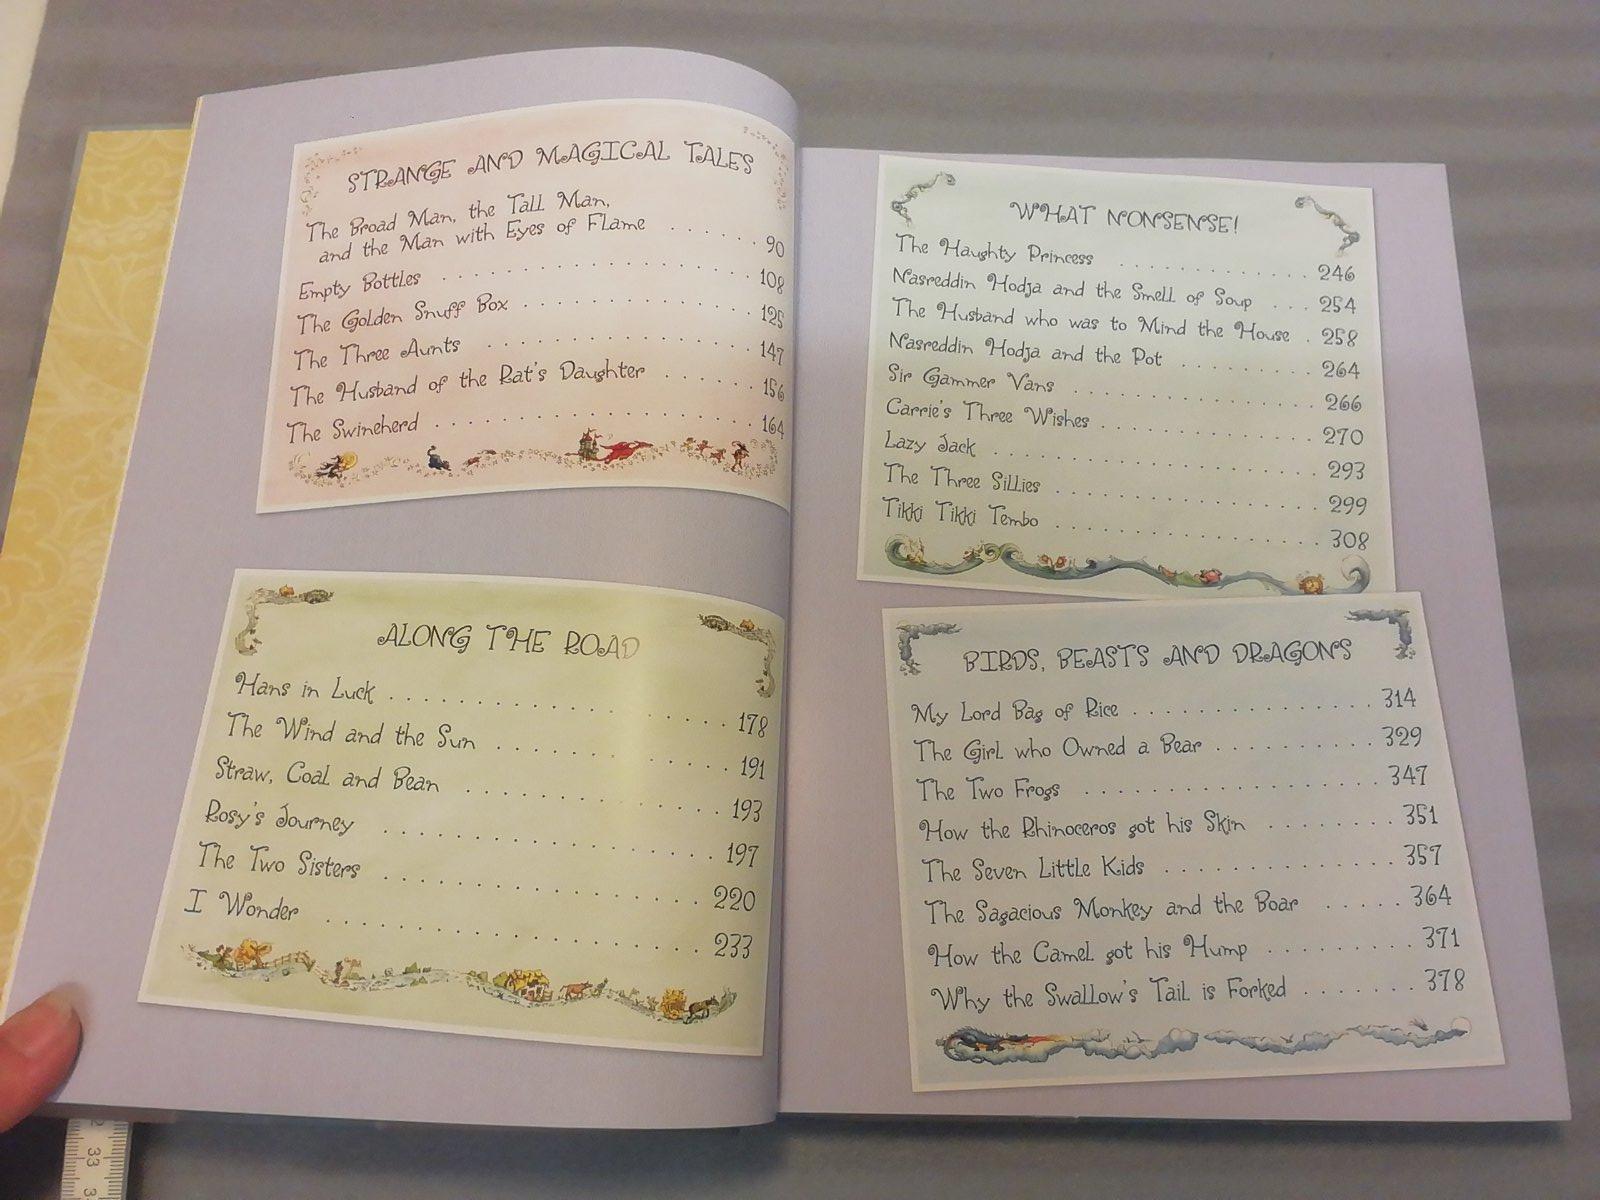 STRANGE AND MAGICAL TALES
The Broad Man, the Tall Man,
and the Man with Eyes of Flame . . . . . . 90
Empty Bottles . . . . . . . . . . . . . . . . 108
The Golden Snuff Box . . . . . . . . . . . . 125
The Three Aunts . . . . . . . . . . . . . . 147
The Husband of the Rat's Daughter . . . . . . 156
The Swineherd . . . . . . . . . . . . . . . . 164
ALONG THE ROAD
Hans in Luck . . . . . . . . . . . . . . . . 178
The Wind and the Sun . . . . . . . . . . . . 191
Straw, Coal and Bean . . . . . . . . . . . . 193
Rosy's Journey . . . . . . . . . . . . . . . 197
The Two Sisters . . . . . . . . . . . . . . . 220
I Wonder . . . . . . . . . . . . . . . . . . 233
WHAT NONSENSE!
The Haughty Princess . . . . . . . . . . . 246
Nasreddin Hodja and the Smell of Soup . . . 254
The Husband who was to Mind the House . 258
Nasreddin Hodja and the Pot . . . . . . . . 264
Sir Gammer Vans . . . . . . . . . . . . . 266
Carrie's Three Wishes . . . . . . . . . . . 270
Lazy Jack . . . . . . . . . . . . . . . . . 293
The Three Sillies . . . . . . . . . . . . . 299
Tikki Tikki Tembo . . . . . . . . . . . . . 308
BIRDS, BEASTS AND DRAGONS
My Lord Bag of Rice . . . . . . . . . . . . . 314
The Girl who Owned a Bear . . . . . . . . . 329
The Two Frogs . . . . . . . . . . . . . . . 347
How the Rhinoceros got his Skin . . . . . . . 351
The Seven Little Kids . . . . . . . . . . . . 357
The Sagacious Monkey and the Boar . . . . . 364
How the Camel got his Hump . . . . . . . . 371
Why the Swallow's Tail is Forked . . . . . . . 378
33